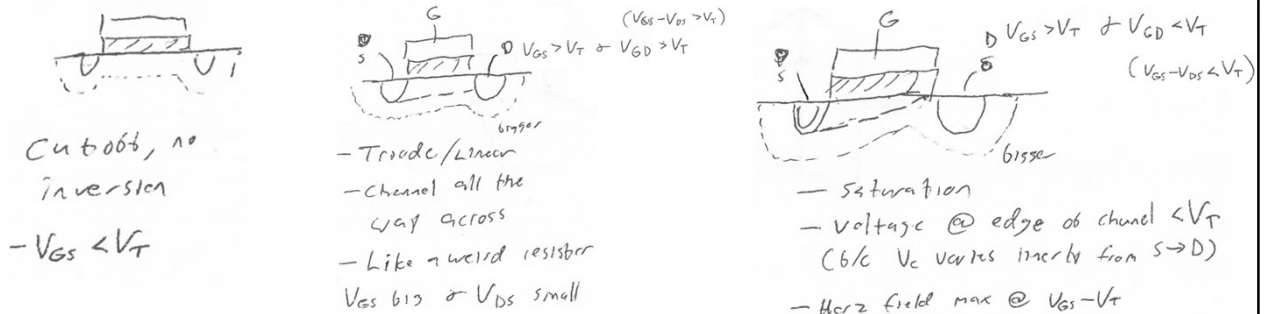 Cutoff, no
inversion
- VGS < VT
G
S
D
(VGS - VDS > VT)
VGS > VT & VGD > VT
bigger
- Triode/Linear
- Channel all the
way across
- Like a weird resistor
VGS big & VDS small
G
S
D
VGS > VT & VGD < VT
(VGS - VDS < VT)
bigger
- Saturation
- Voltage @ edge of channel < VT
(b/c Vc varies linearly from S→D)
- Horz field max @ VGS - VT